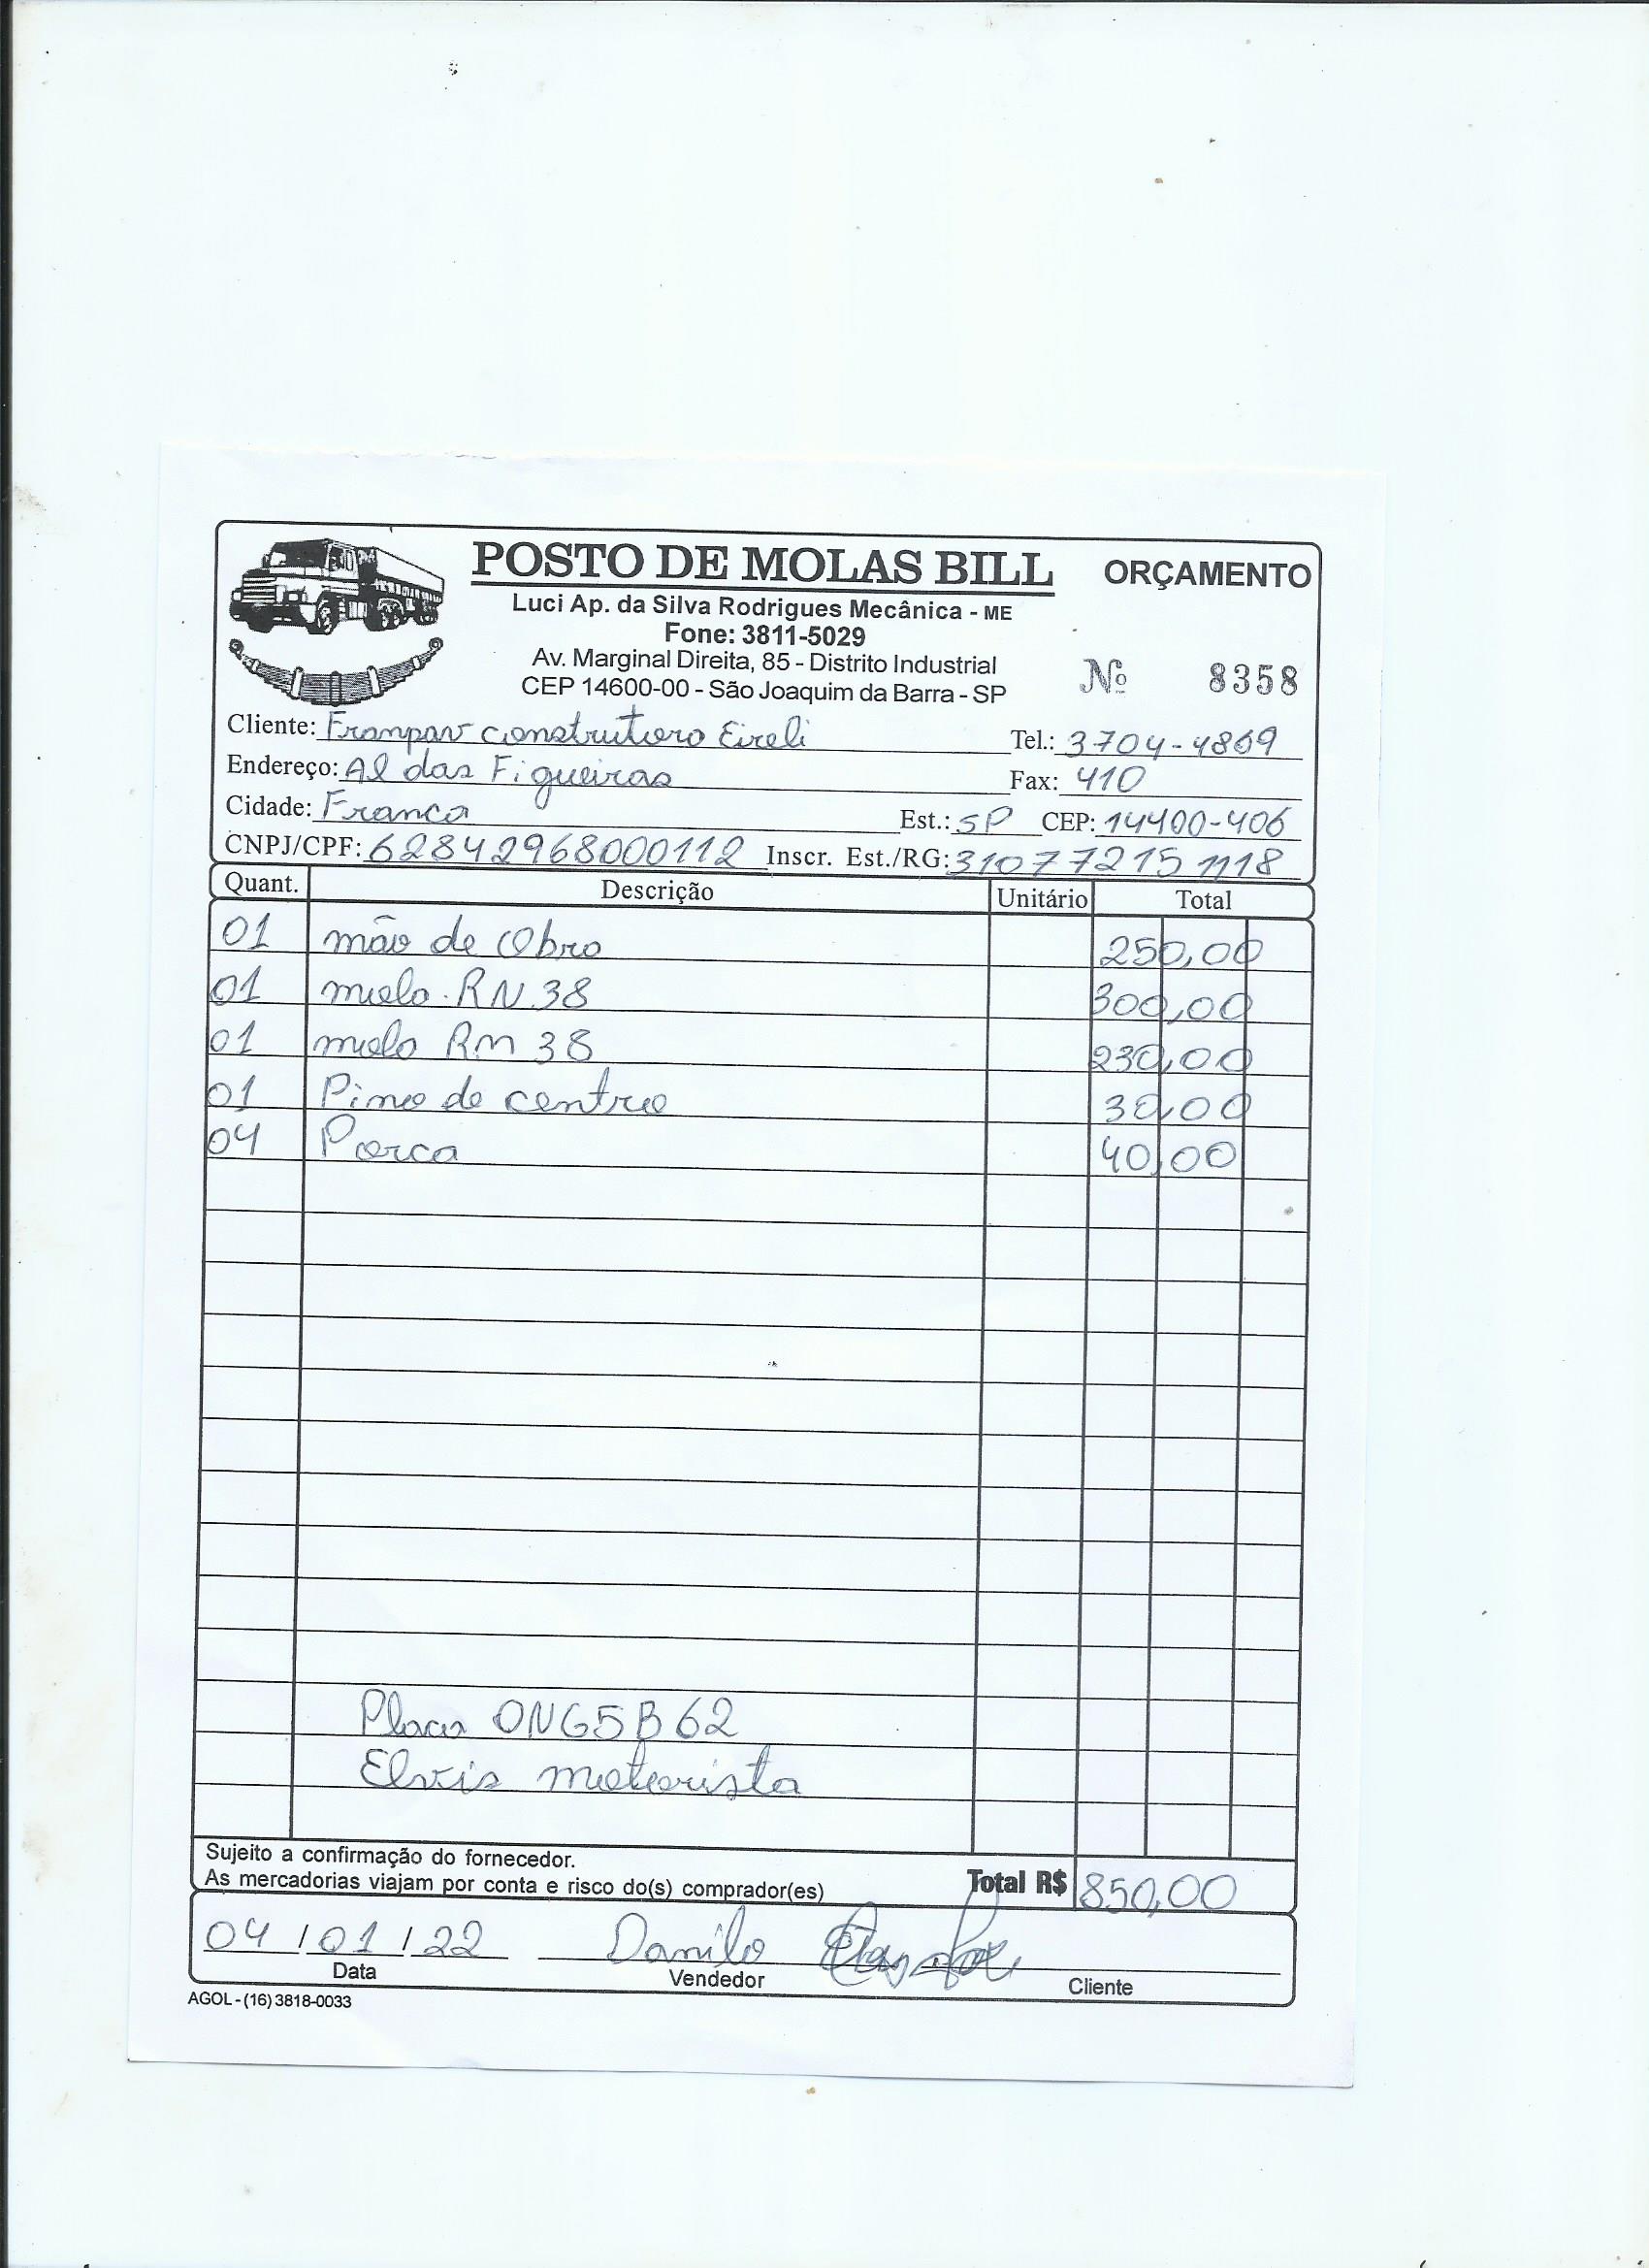 POSTO DE MOLAS BILL ORÇAMENTO
Luci Ap. da Silva Rodrigues Mecânica - ME
Fone: 3811-5029
Av. Marginal Direita, 85 - Distrito Industrial
CEP 14600-00 - São Joaquim da Barra - SP
Nº 8358
Cliente: Franpav construtora Eireli Tel.: 3704-4869
Endereço: Al das Figueiras Fax: 410
Cidade: Franca Est.: SP CEP: 14400-406
CNPJ/CPF: 62842968000112 Inscr. Est./RG: 310772151118
Quant. Descrição Unitário Total
01 mão de Obra 250,00
01 mola RN 38 300,00
01 mola RM 38 230,00
01 Pino de centro 30,00
04 Porca 40,00
Placa ONG5B62
Elvis motorista
Sujeito a confirmação do fornecedor.
As mercadorias viajam por conta e risco do(s) comprador(es) Total R$ 850,00
04/01/22 Danilo
Data Vendedor Cliente
AGOL - (16) 3818-0033